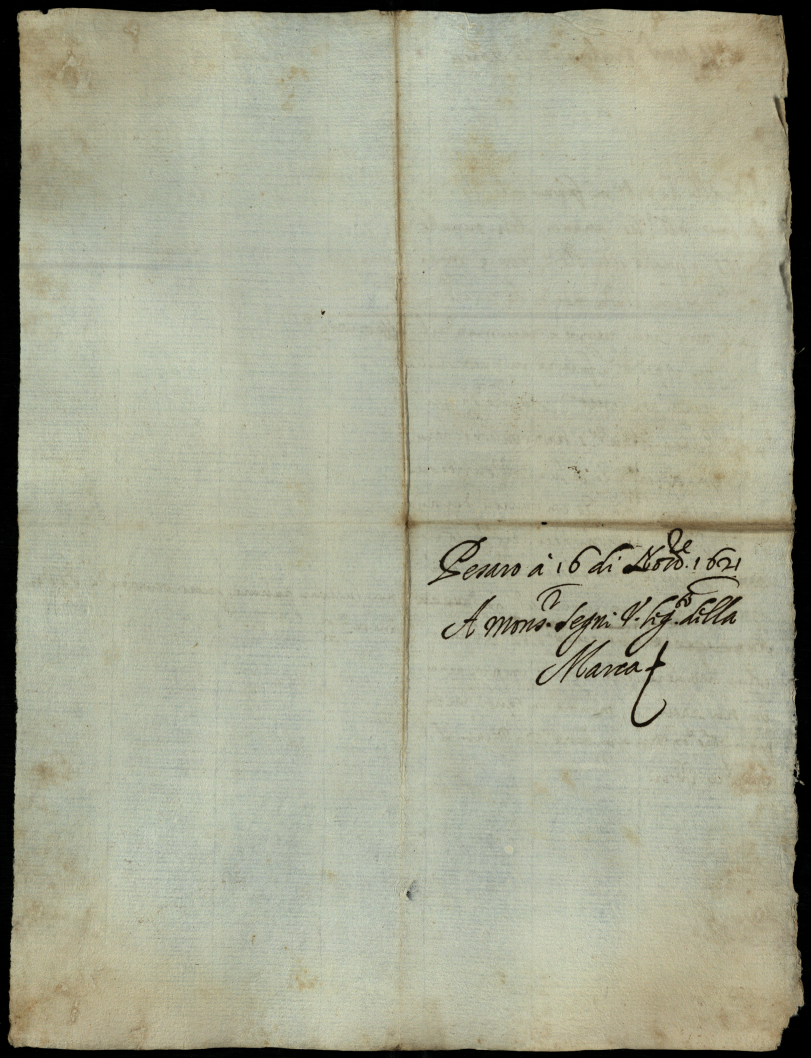 Pesaro à 16 di Nov.re 1621
A Mons.r Segni V. Leg.to della
Marca